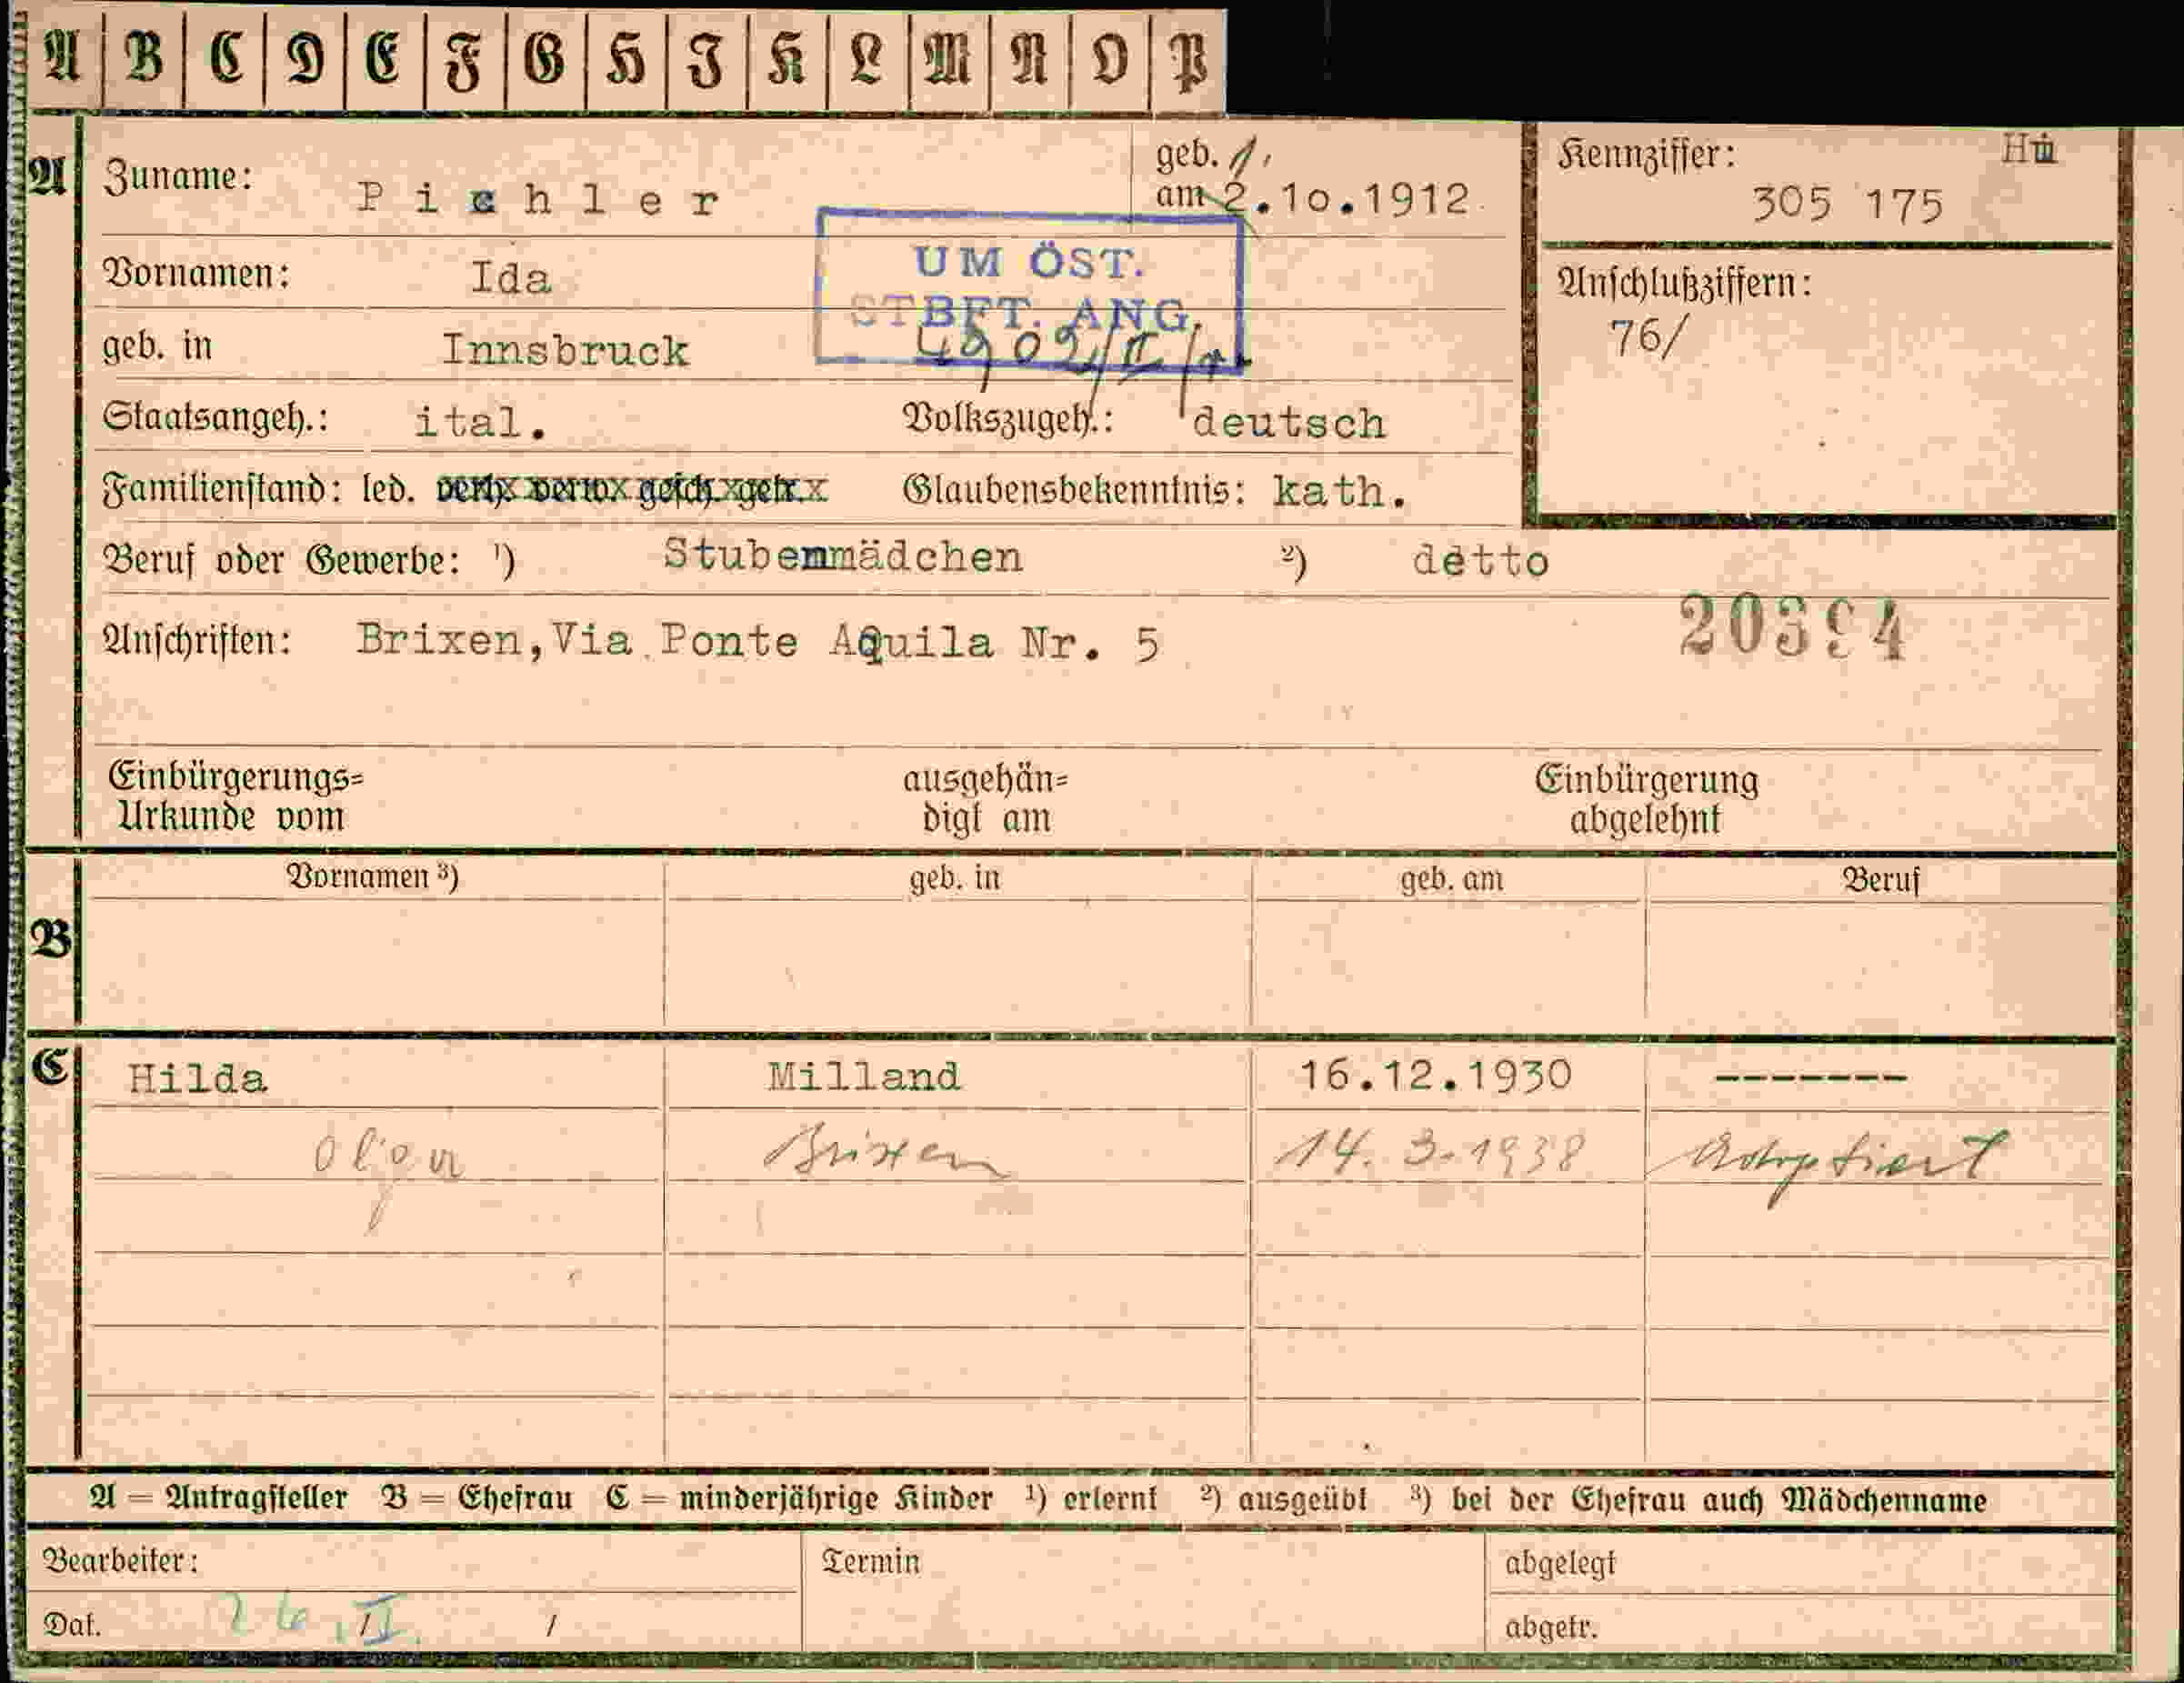 A B C D E F G H I K L M N O P
A Zuname: Pichler geb. 1. am 2.10.1912
Kennziffer: Hü
305 175
UM ÖST.
STBFT. ANG.
Vornamen: Ida
Anschlußziffern:
76/
geb. in Innsbruck
Staatsangeh.: ital. Volkszugeh.: deutsch
Familienstand: led. verh. verw. gesch. getr. Glaubensbekenntnis: kath.
Beruf oder Gewerbe: ¹) Stubenmädchen ²) detto
20394
Anschriften: Brixen, Via Ponte AQuila Nr. 5
Einbürgerungs= ausgehän= Einbürgerung
Urkunde vom digt am abgelehnt
Vornamen ³) geb. in geb. am Beruf
B
C Hilda Milland 16.12.1930 -------
Olga Brixen 14. 3. 1938 Adoptiert
A = Antragsteller B = Ehefrau C = minderjährige Kinder ¹) erlernt ²) ausgeübt ³) bei der Ehefrau auch Mädchenname
Bearbeiter: Termin abgelegt
Dat. 26. II. / abgetr.